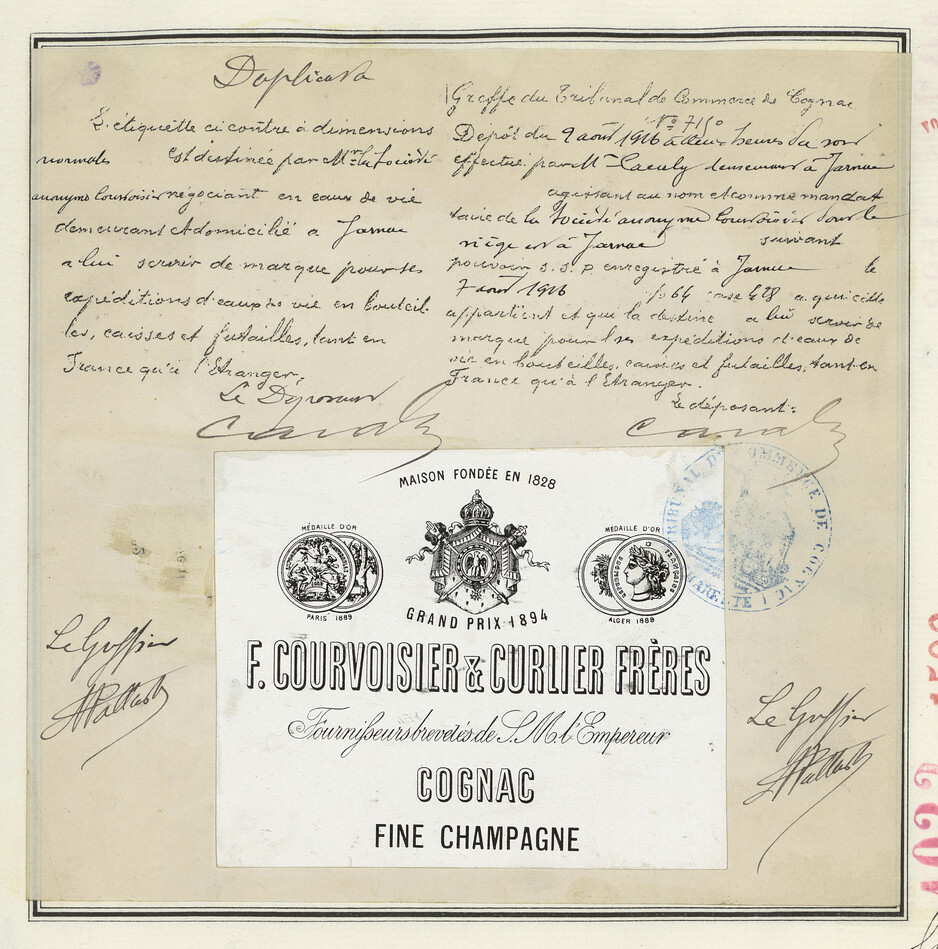 Duplicata
L'étiquette ci contre à dimensions
normales est destinée par Mr la Société
anonyme Courvoisier négociant en eaux de vie
demeurant et domicilié a Jarnac
a lui servir de marque pour ses
expéditions d'eaux de vie en bouteil-
les, caisses et futailles, tant en
France qu'à l'Etranger,
Le Déposant
Greffe du Tribunal de Commerce de Cognac
No 7150
Dépôt du 9 aout 1916 à deux heures du soir
effectué par Mr demeurant à Jarnac
agissant au nom et comme mandat
taire de la Société anonyme Courvoisier dont le
siège est à Jarnac suivant
pouvoir S.S.P. enregistré à Jarnac le
7 aout 1916 fo 64 case 428 a qui cette
appartient et qui la destine a lui servir de
marque pour ses expéditions d'eaux de
vie en bouteilles, caisses et futailles, tant en
France qu'à l'Etranger.
Le déposant:
MAISON FONDÉE EN 1828
MÉDAILLE D'OR
PARIS 1889
GRAND PRIX 1894
MEDAILLE D'OR
ALGER 1888
F. COURVOISIER & CURLIER FRÈRES
Fournisseurs brevetés de S. M. l'Empereur
COGNAC
FINE CHAMPAGNE
TRIBUNAL DE COMMERCE DE COGNAC
Le Greffier
Le Greffier